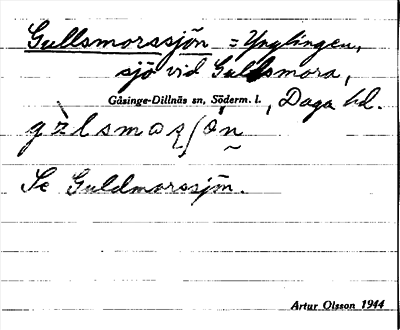 Gullsmorssjön = Ynglingen,
sjö vid Gullsmora,
Gåsinge-Dillnäs sn, Söderm. l., Daga hd.
Se Guldmorssjön.
Artur Olsson 1944